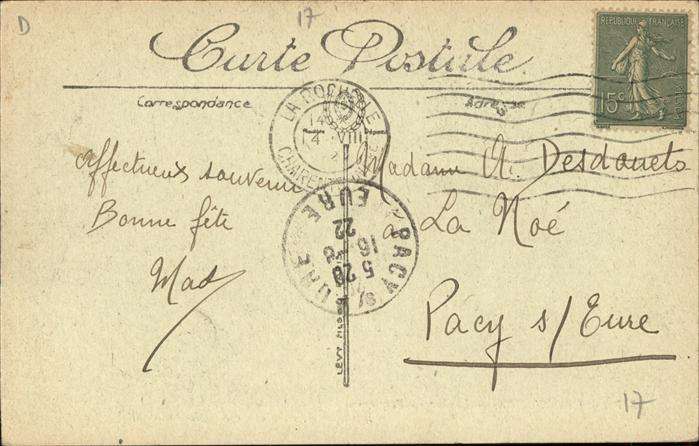 D
17
Carte Postale
REPUBLIQUE FRANÇAISE
15c
Correspondance
Adresse
LA ROCHELLE
14
14 VIII
Affectueux souvenir
Bonne fête
Mad
Madame A. Desdouets
à La Noé
Pacy s/Eure
PACY S/ EURE
5 20
16 -8
22
EURE
LEVY FILS
17